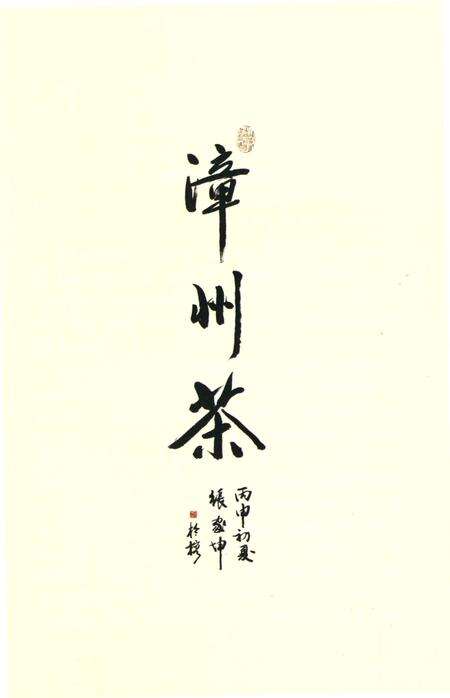 漳
州
茶
丙申初夏
張家坤
於榕